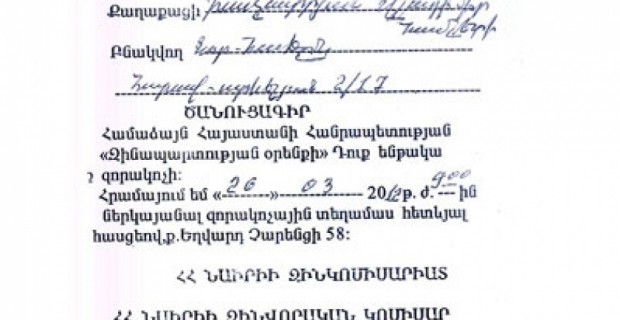 Քաղաքացի
Բնակվող
2/17
ԾԱՆՈՒՑԱԳԻՐ
Համաձայն Հայաստանի Հանրապետության
«Զինապարտության օրենքի» Դուք ենթակա
զորակոչի:
Հրամայում եմ «26» 03 2012թ. ժ. 9:00 ին
ներկայանալ զորակոչային տեղամաս հետևյալ
հասցեով,ք.Եղվարդ Չարենցի 58:
ՀՀ ՆԱԻՐԻԻ ԶԻՆԿՈՄԻՍԱՐԻԱՏ
ՀՀ ՆԱԻՐԻԻ ԶԻՆՎՈՐԱԿԱՆ ԿՈՄԻՍԱՐ